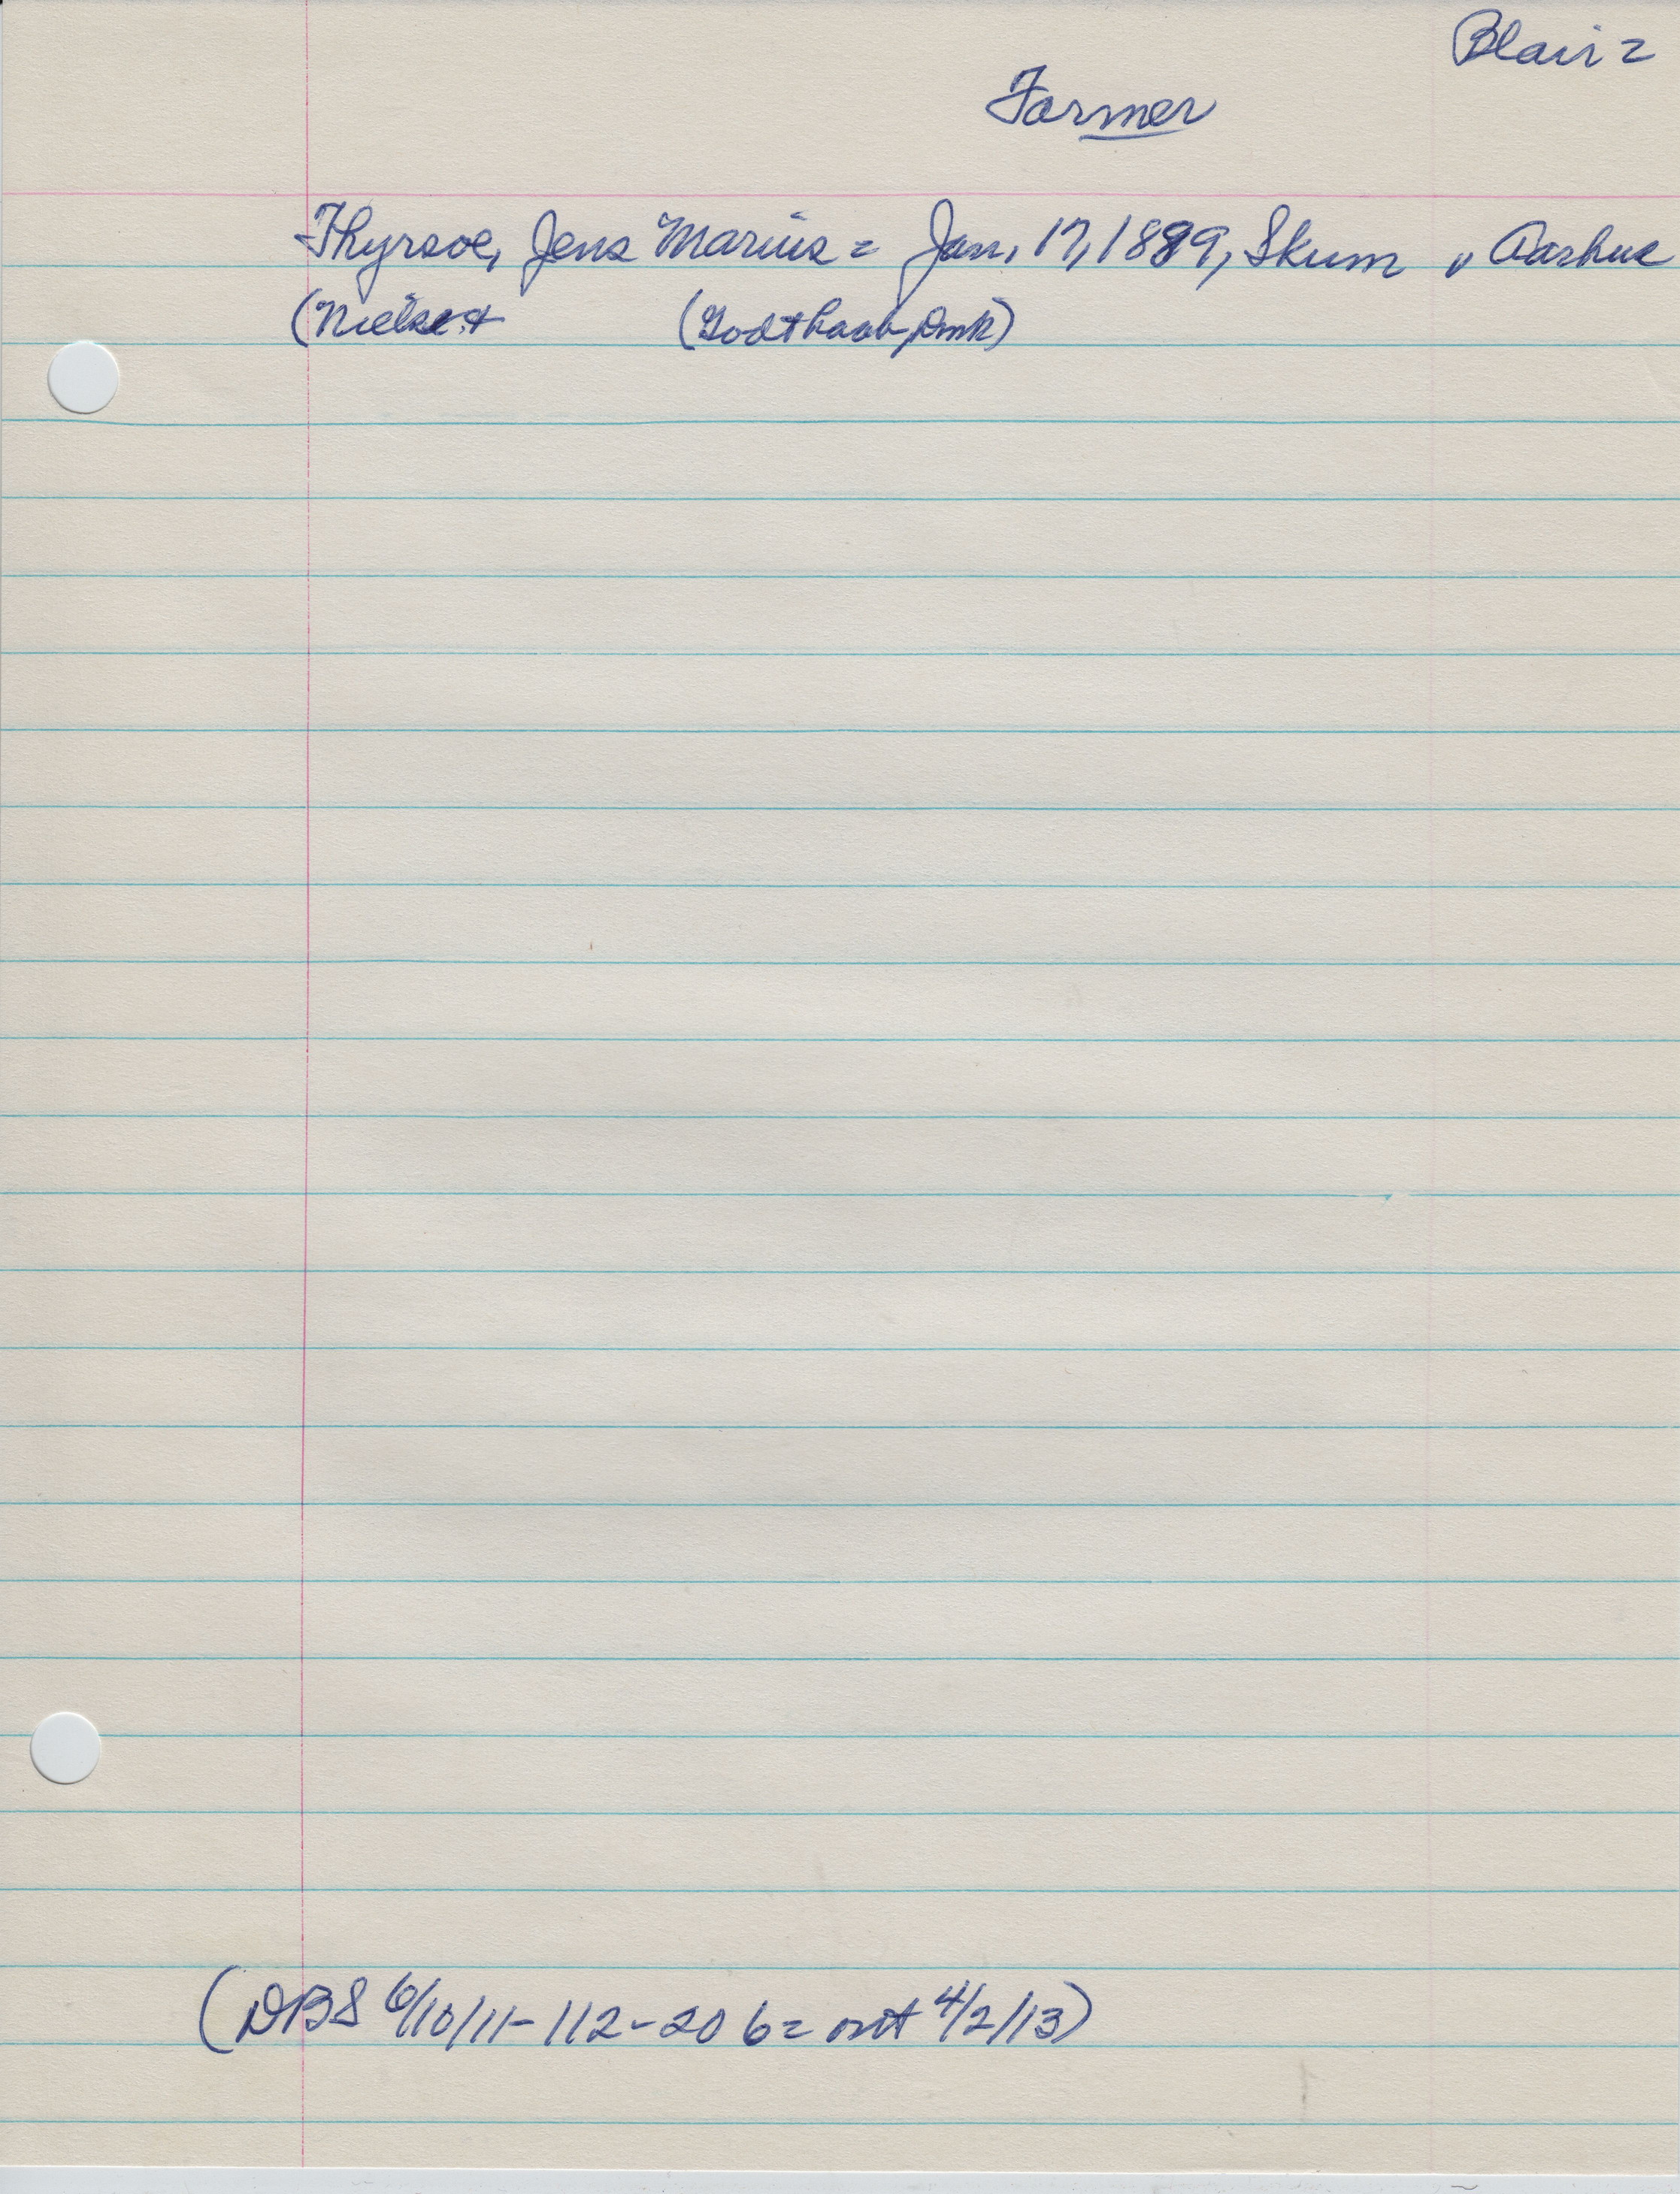 Blair =
Farmer
Thyrsoe, Jens Marius = Jan. 17, 1889, Skum " Aarhus
(Nielsen (Godthaab, Dmk)
(DBS 6/10/11-112-20 6 = out 4/2/13)